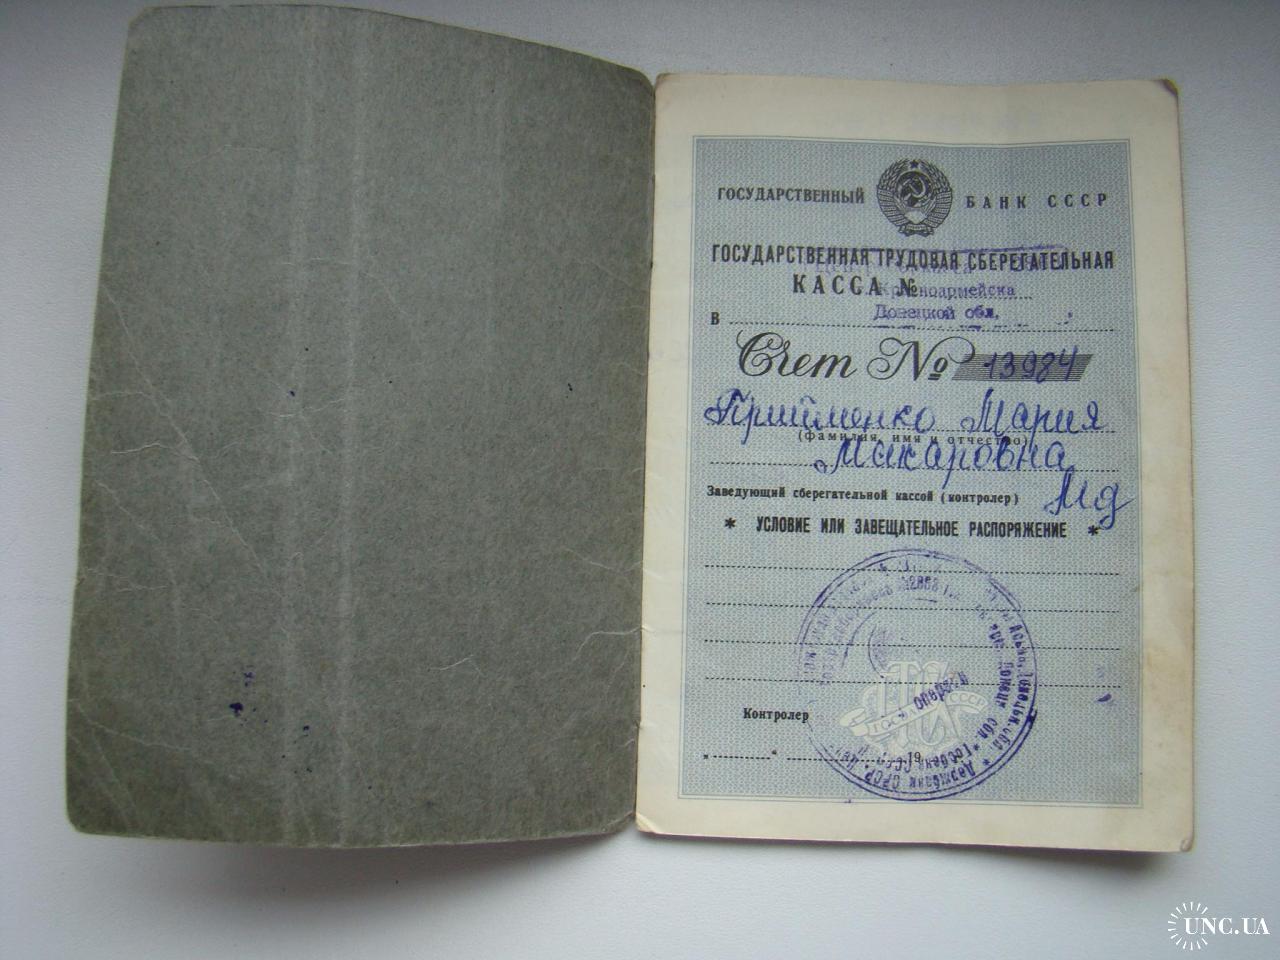 ГОСУДАРСТВЕННЫЙ БАНК СССР
ГОСУДАРСТВЕННАЯ ТРУДОВАЯ СБЕРЕГАТЕЛЬНАЯ
КАССА № Красноармейска
В Донецкой обл.
Счет № 13984
Прийменко Мария
(фамилия, имя и отчество)
Макаровна
Заведующий сберегательной кассой (контролер)
* УСЛОВИЕ ИЛИ ЗАВЕЩАТЕЛЬНОЕ РАСПОРЯЖЕНИЕ *
Контролер
„ “ 19
UNC.UA